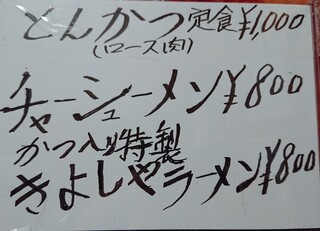 とんかつ定食¥1,000
(ロース肉)
チャーシューメン¥800
かつ入り特製
きよしやラーメン¥800